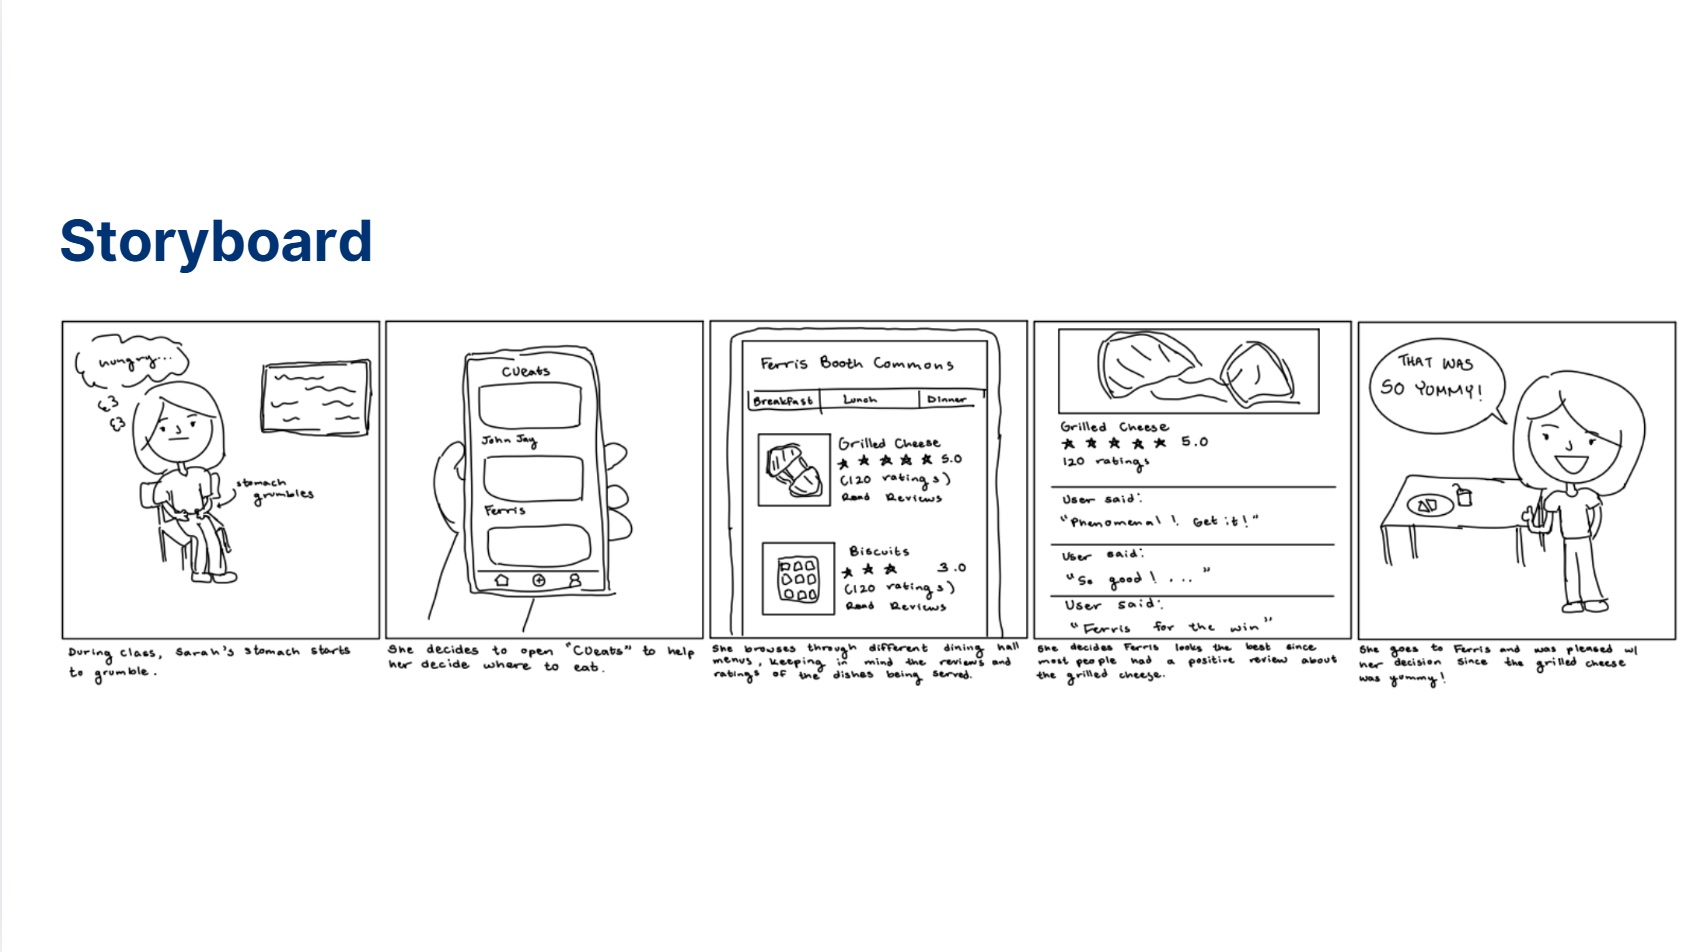 Storyboard
hungry...
stomach
grumbles
During class, Sarah's stomach starts
to grumble.
CUeats
John Jay
Ferris
She decides to open "CUeats" to help
her decide where to eat.
Ferris Booth Commons
Breakfast Lunch Dinner
Grilled Cheese
★ ★ ★ ★ ★ 5.0
(120 ratings)
Read Reviews
Biscuits
★ ★ ★ 3.0
(120 ratings)
Read Reviews
She browses through different dining hall
menus, keeping in mind the reviews and
ratings of the dishes being served.
Grilled Cheese
★ ★ ★ ★ ★ 5.0
120 ratings
User said:
"Phenomenal! Get it!"
User said:
"So good! ..."
User said:
"Ferris for the win"
She decides Ferris looks the best since
most people had a positive review about
the grilled cheese.
THAT WAS
SO YUMMY!
She goes to Ferris and was pleased w/
her decision since the grilled cheese
was yummy!